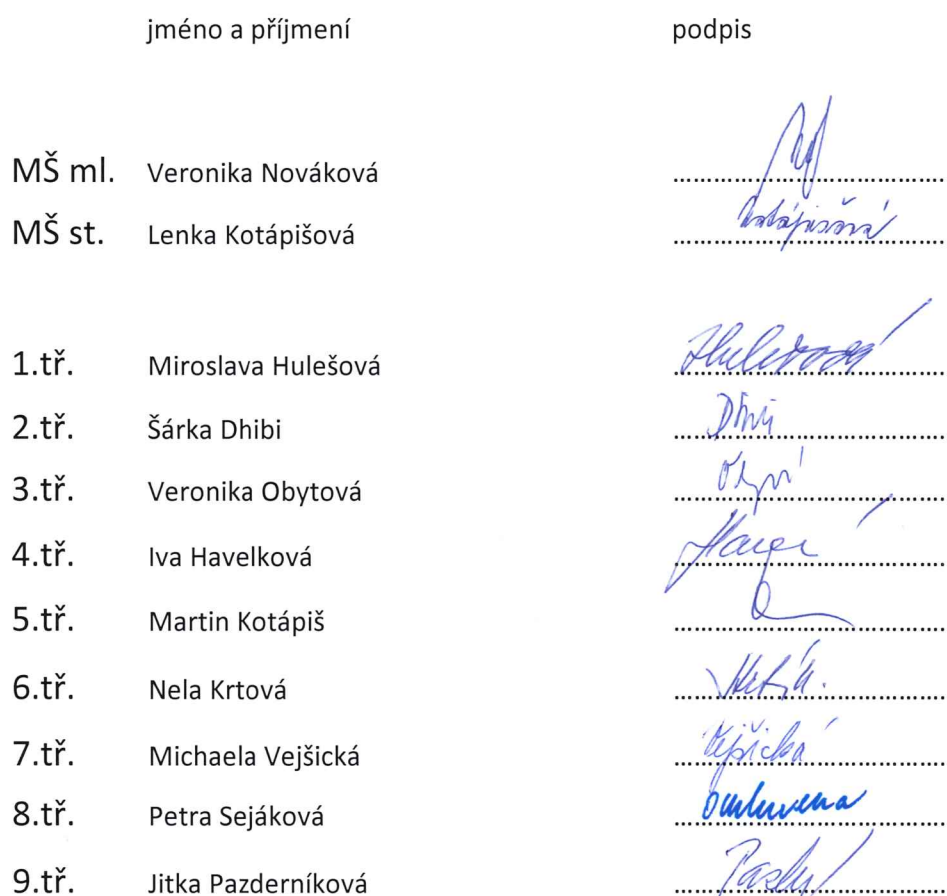 jméno a příjmení podpis
MŠ ml. Veronika Nováková
MŠ st. Lenka Kotápišová Kotápišová
1.tř. Miroslava Hulešová Hulešová
2.tř. Šárka Dhibi Dhibi
3.tř. Veronika Obytová
4.tř. Iva Havelková
5.tř. Martin Kotápiš
6.tř. Nela Krtová
7.tř. Michaela Vejšická Vejšická
8.tř. Petra Sejáková omluvena
9.tř. Jitka Pazderníková